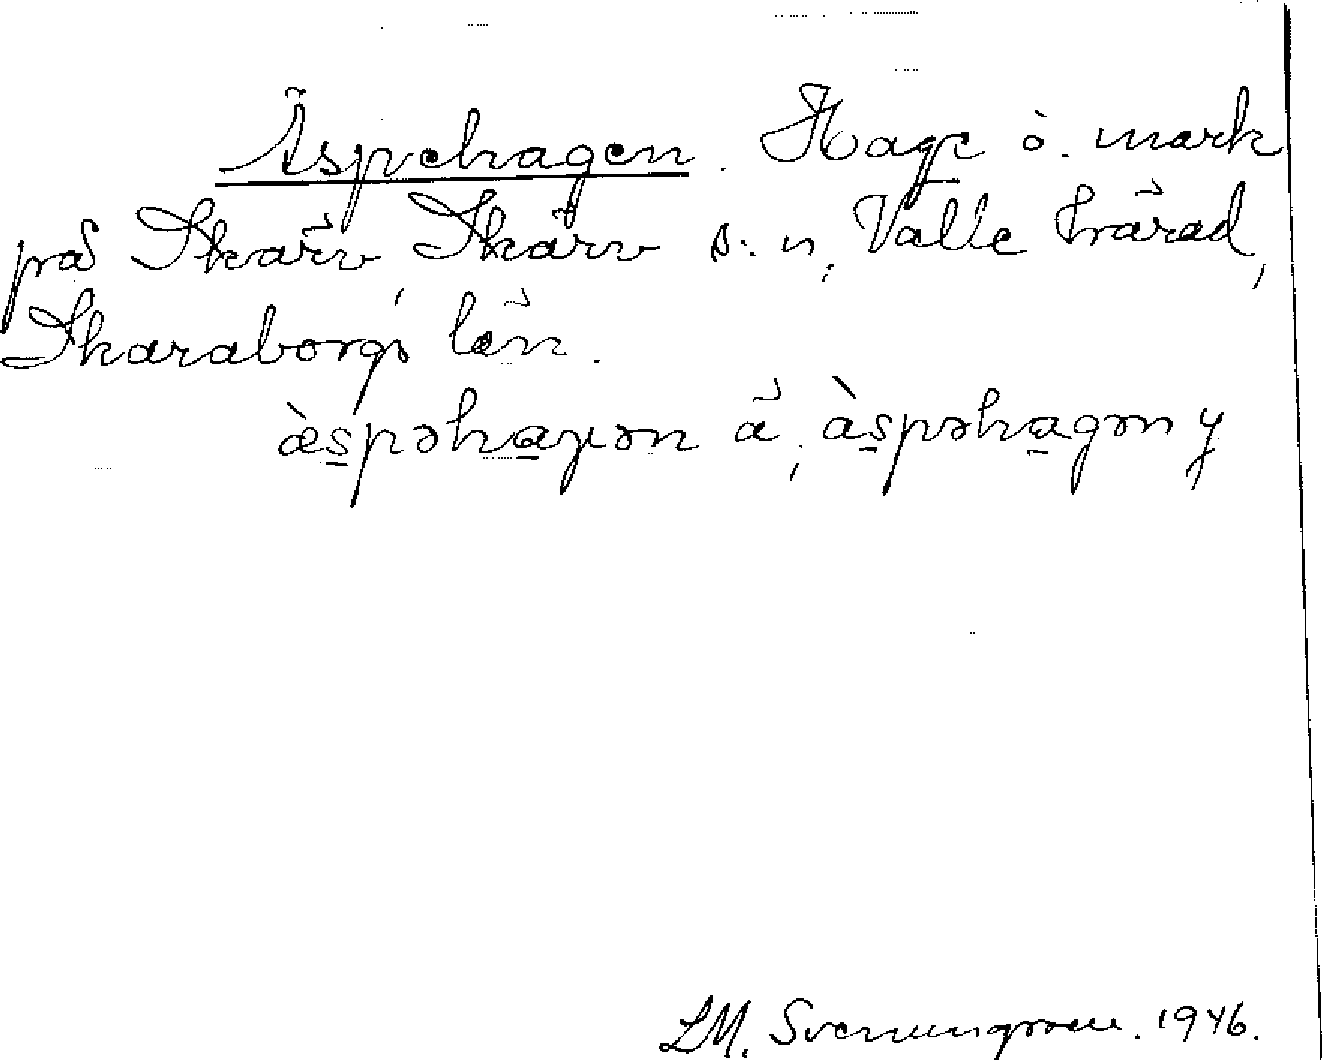 Äspehagen. Hage o. mark
på Skärv, Skärv s:n, Valle härad,
Skaraborgs län.
æ̀spəhaɣən ä, àspəhagən y
LM. Svenungsson. 1946.